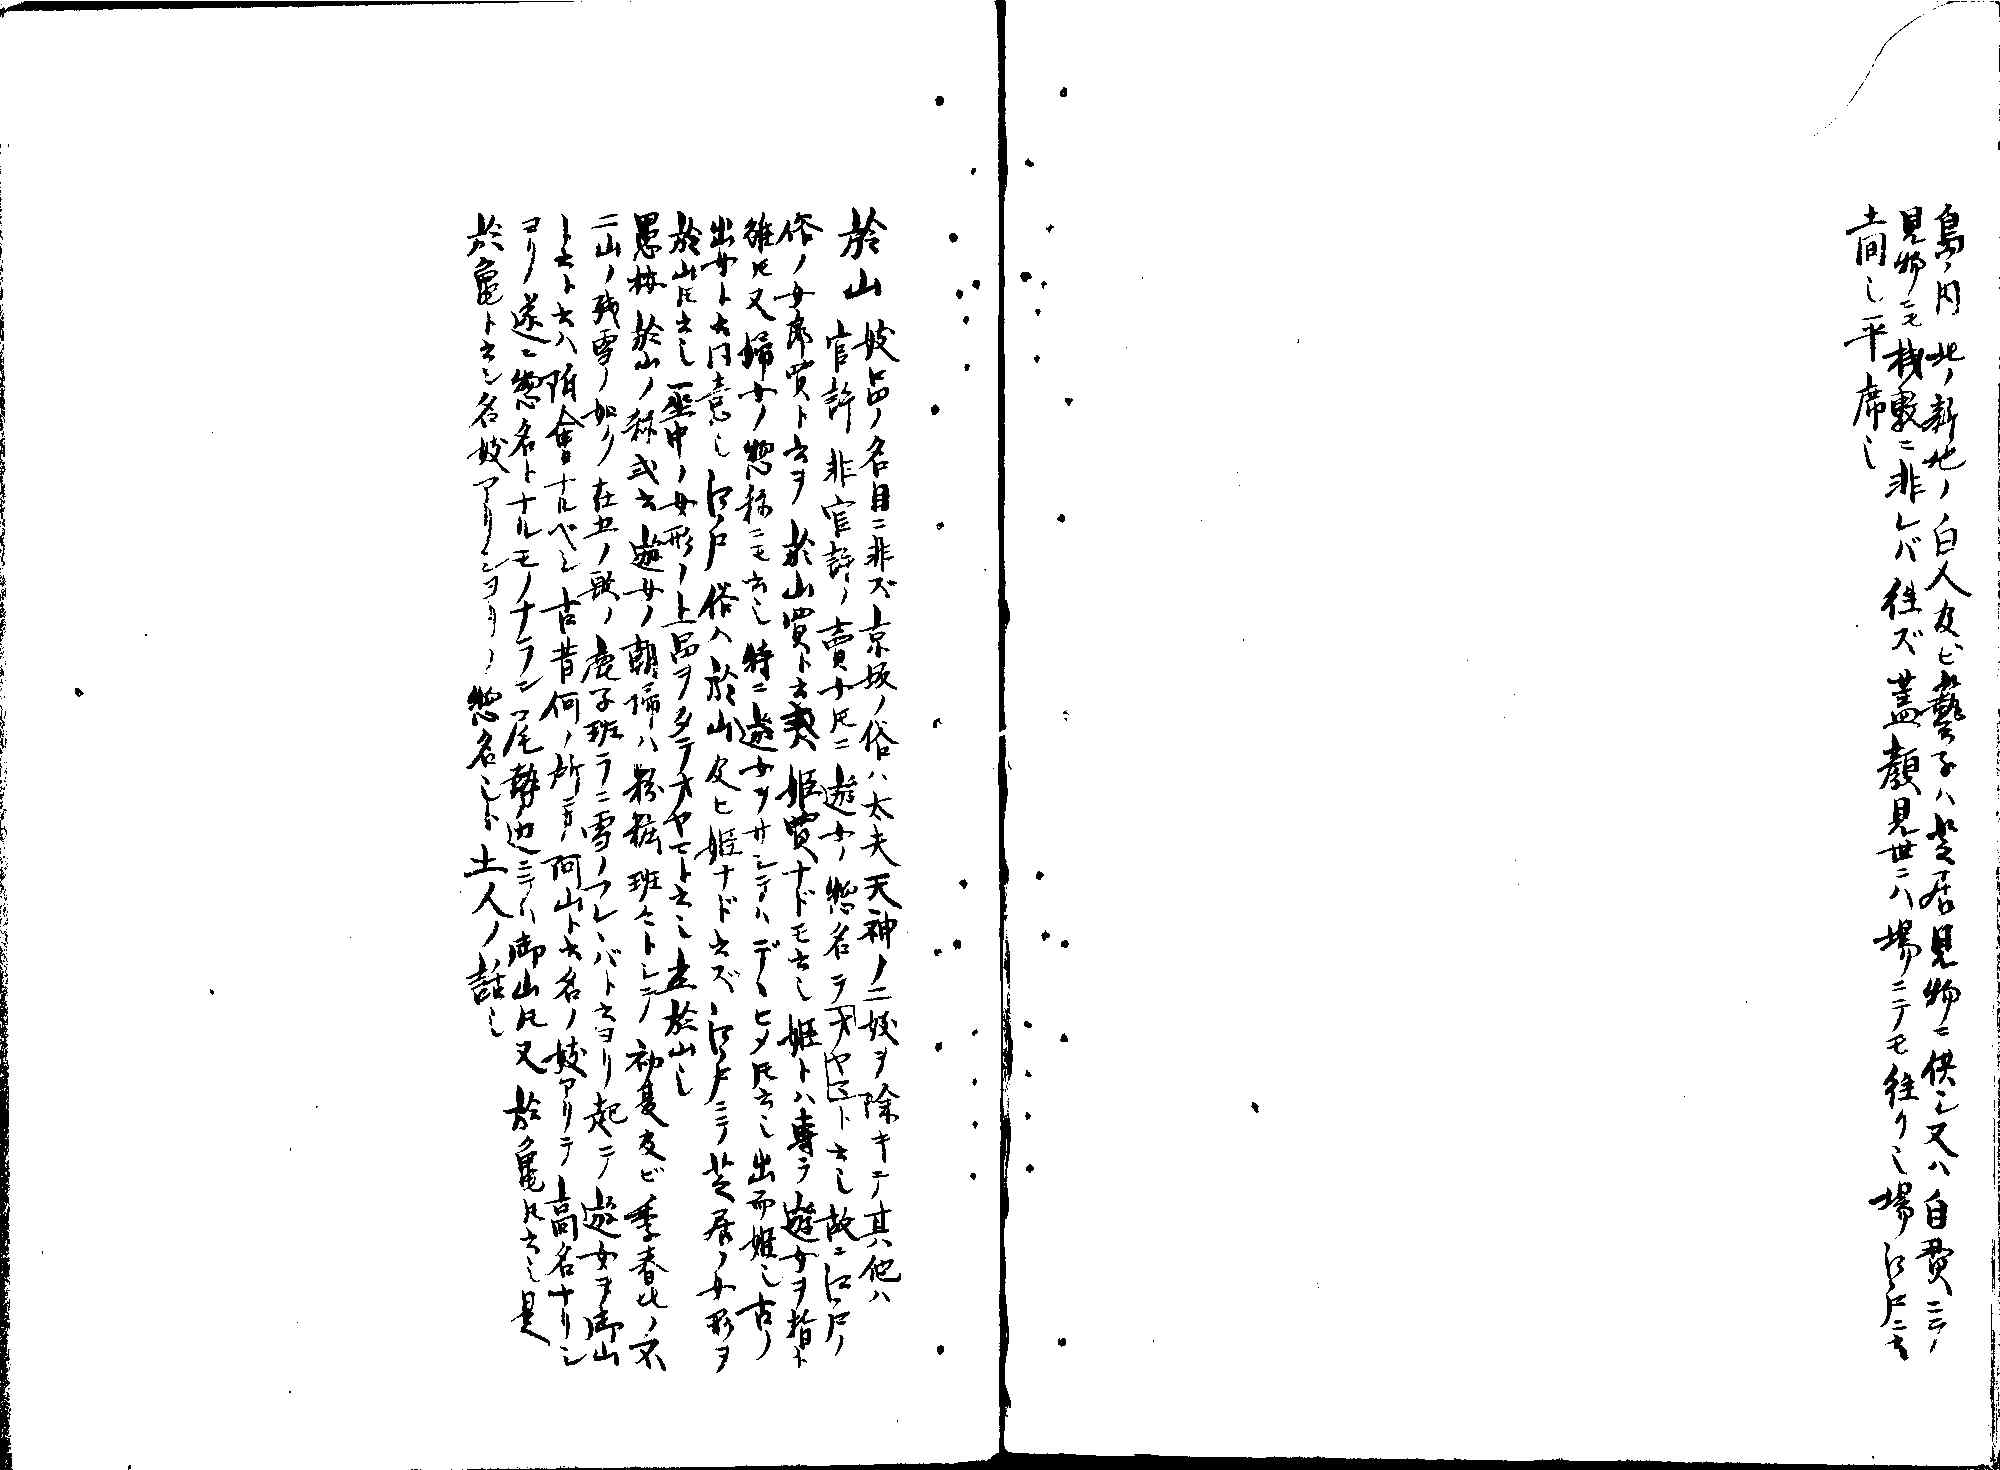 島ノ内北ノ新地ノ白人及ビ藝子ハ芝居見物ニ供シ又ハ自費ニテノ
見物ニモ桟敷ニ非レバ往ズ蓋顔見世ニハ場ニテモ往リ也場江戸ニ云
土間也平席也
於山 妓品ノ名目ニ非ズ京坂ノ俗ハ太夫天神ノ二妓ヲ除キテ其他ハ
官許非官許ノ賣女トモニ遊女ノ惣名ヲオヤマト云也故ニ江戸ノ
俗ノ女郎買ト云ヲ於山買ト云又姫買ナドモ云也姫トハ専ラ遊女ヲ指ト
雖トモ又婦女ノ惣称ニモ云也特ニ遊女ヲサシテハデヽヒメトモ云也出而姫也古ノ
出女ト云同意也江戸俗ハ於山及ヒ姫ナド云ズ江戸ニテ芝居ノ女形ヲ
於山トモ云也一座中ノ女形ノ上品ヲタテオヤマト云也立於山也
愚按於山ノ称或云遊女ノ朝帰ハ粉粧班々トシテ初夏及ビ季春比ノ不
二山ノ残雪ノ如ク在五ノ歌ノ鹿子班ラニ雪ノフレバト云ヨリ起テ遊女ヲ御山
ト云ト云ハ附會ナルベシ古昔何ノ所ニカ阿山ト云名ノ妓アリテ高名ナリシ
ヨリノ遂ニ惣名トナルモノナラン尾勢辺ニテハ御山トモ又於亀トモ云也是
於亀ト云シ名妓アリシヨリノ惣名也ト土人ノ話也